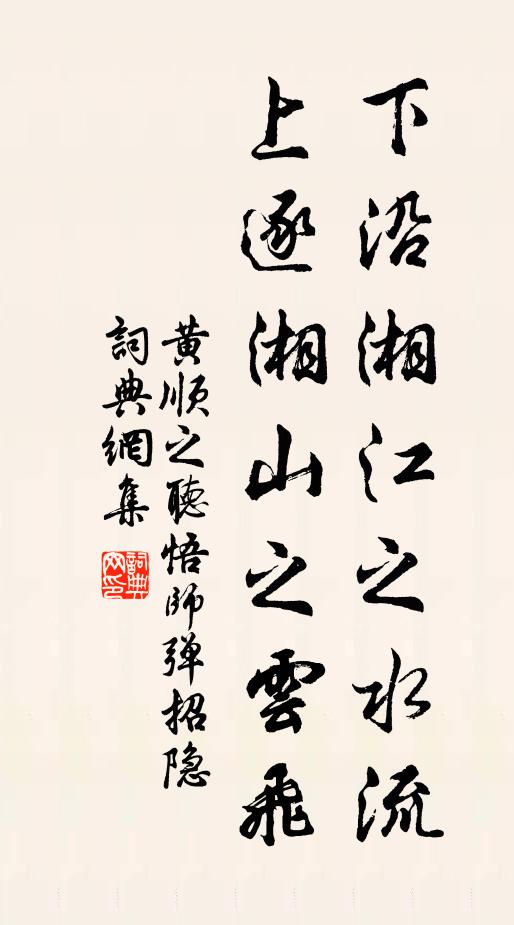 下沿湘江之水流
上逐湘山之雲飛
黄順之聽悟師弹招隐
詞典網集
詞典网印